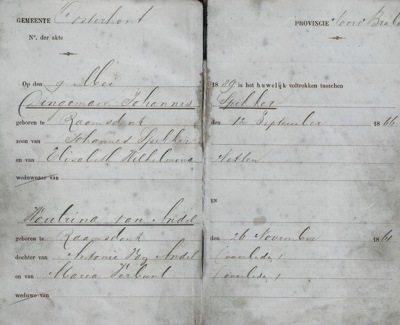 GEMEENTE Oosterhout PROVINCIE Noord Brabant
N°. der akte
Op den 9 Mei 1889 is het huwelijk voltrokken tusschen
Dingeman Johannes Spekker
geboren te Raamsdonk den 12 September 1866
zoon van Johannes Spekker
en van Elisabeth Wilhelmina
weduwnaar van
en
Woutrina van Andel
geboren te Raamsdonk den 26 November 1861
dochter van Antonie van Andel (overleden)
en van Maria Verbunt (overleden)
weduwe van